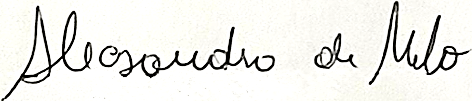 Alessandro de Melo